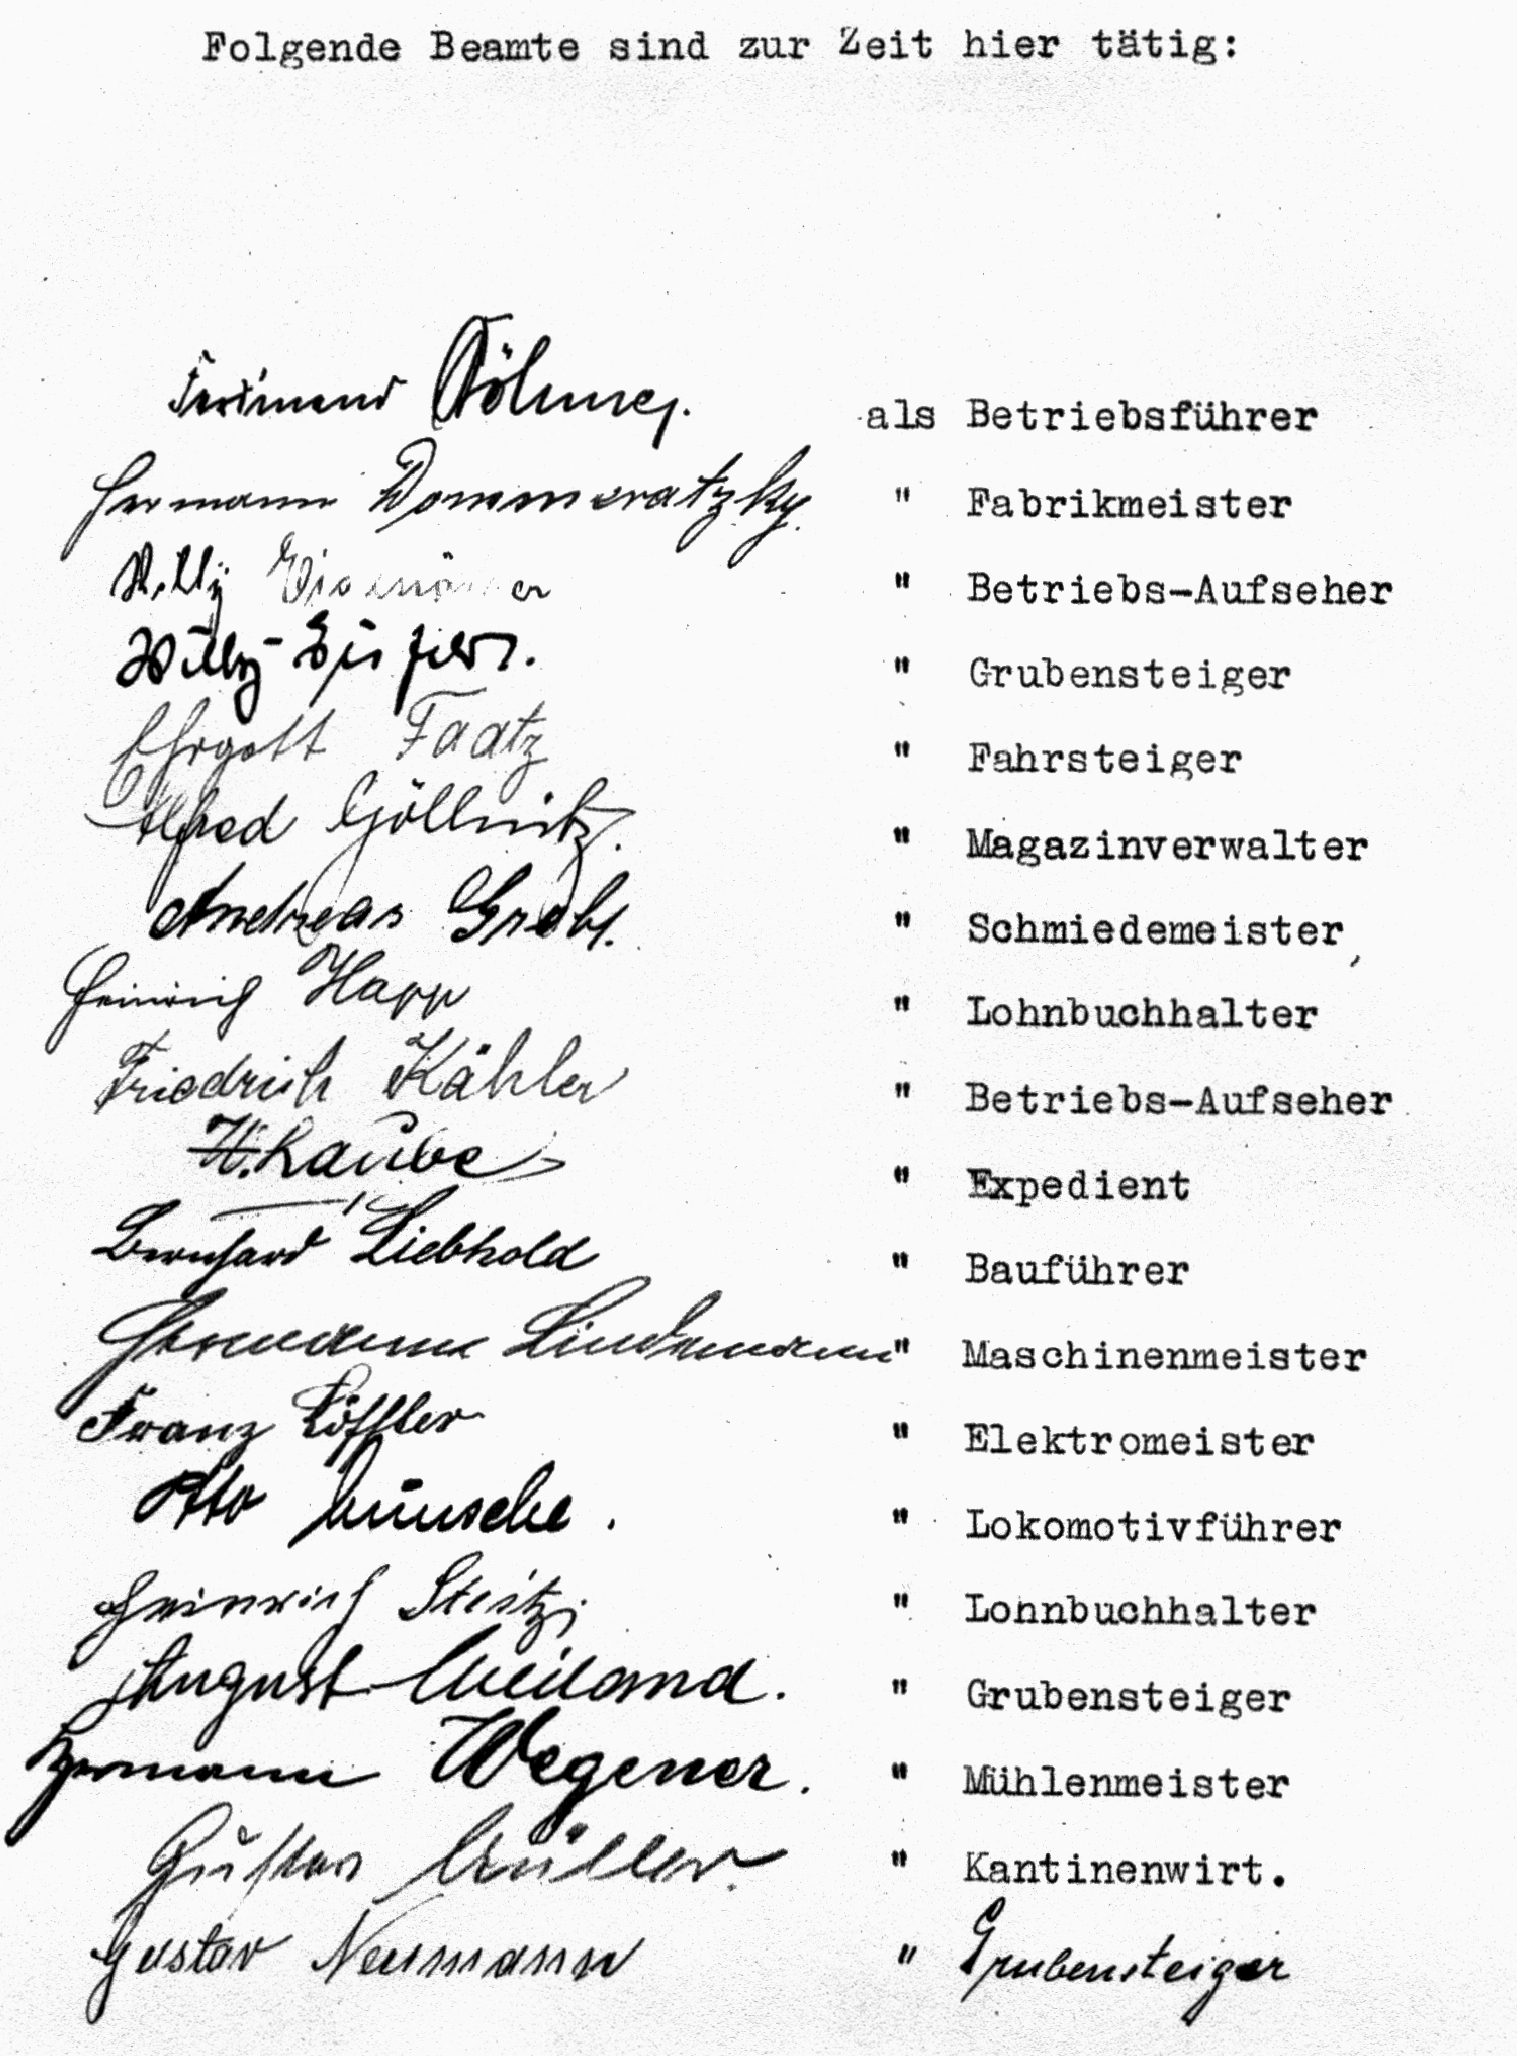 Folgende Beamte sind zur Zeit hier tätig:
Ferdinand Böhme. als Betriebsführer
Hermann Dommeratzky. " Fabrikmeister
Willy " Betriebs-Aufseher
Willy " Grubensteiger
Ehrgott Faatz " Fahrsteiger
Alfred Göllnitz. " Magazinverwalter
Andreas " Schmiedemeister
Heinrich Happ " Lohnbuchhalter
Friedrich Kähler " Betriebs-Aufseher
Laube " Expedient
Bernhard Liebhold " Bauführer
Hermann Lindemann " Maschinenmeister
Franz Löffler " Elektromeister
Otto " Lokomotivführer
Heinrich Steitz. " Lohnbuchhalter
August Weiland. " Grubensteiger
Hermann Wegener. " Mühlenmeister
Gustav Müller. " Kantinenwirt.
Gustav Neumann " Grubensteiger